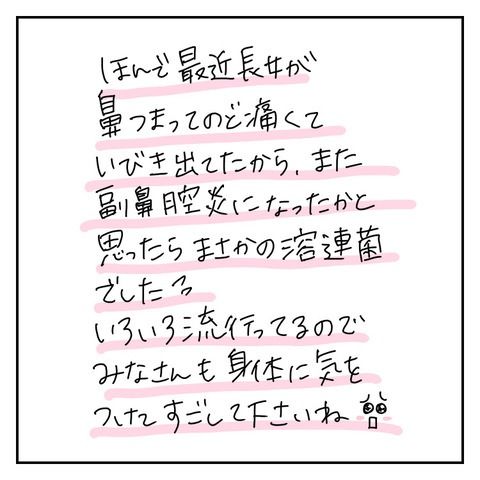 ほんで最近長女が
鼻つまってのど痛くて
いびき出てたから、また
副鼻腔炎になったかと
思ったらまさかの溶連菌
でしたろ
いろいろ流行ってるので
みなさんも身体に気を
つけてすごして下さいね